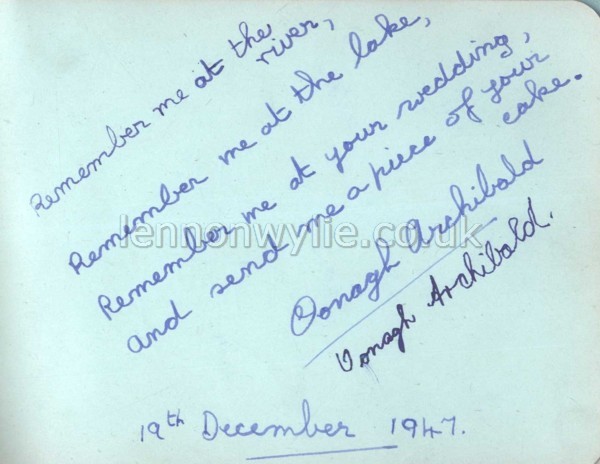 Remember me at the
river,
Remember me at the lake,
Remember me at your wedding,
and send me a piece of your
cake.
Oonagh Archibald
Oonagh Archibald.
19th December 1947.
lennonwylie.co.uk